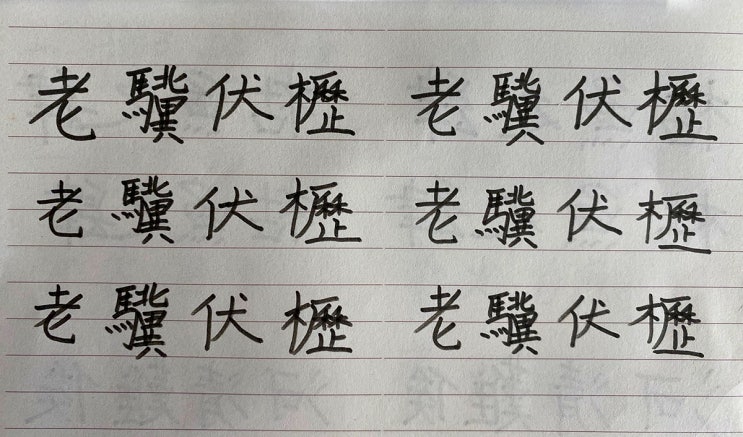 老驥伏櫪 老驥伏櫪
老驥伏櫪 老驥伏櫪
老驥伏櫪 老驥伏櫪